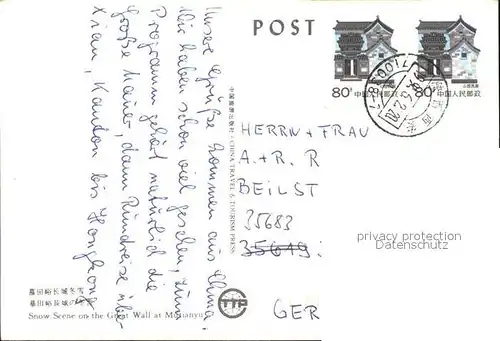 POST
80分
中国人民邮政
80分
中国人民邮政
Unsere Grüße kommen aus China.
Wir haben schon viel gesehen, zum
Programm gehört natürlich die
Große Mauer, dann Rundreise über
Xian, Kanton bis Hongkong
中国旅游出版社 · CHINA TRAVEL & TOURISM PRESS
HERRN + FRAU
A. + R. R
BEILST
35683
35649
privacy protection
Datenschutz
GER
慕田峪长城冬雪
慕田峪長城の
Snow Scene on the Great Wall at Mutianyu
TTP